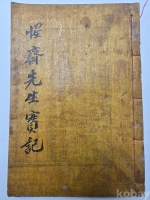 惺齋先生實記
kobay